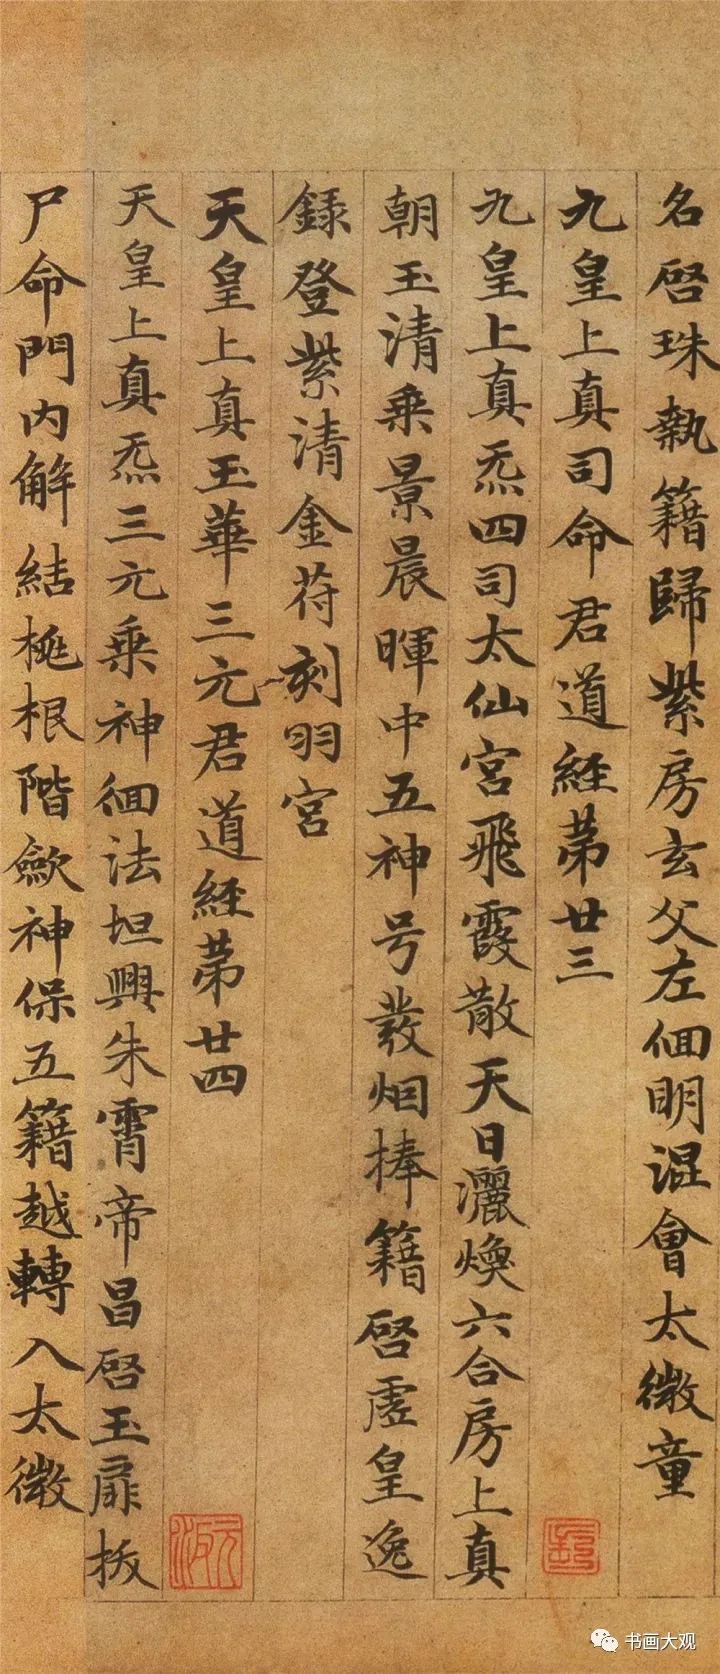 名啓珠執籍歸紫房玄父左佪明混會太微童
九皇上真司命君道経苐廿三
九皇上真炁四司太仙宮飛霞散天日灑煥六合房上真
朝玉清乗景晨暉中五神号發烟捧籍啓虛皇逸
錄登紫清金苻刻羽宮
天皇上真玉華三元君道経苐廿四
天皇上真炁三元乗神佪法坦興朱霄帝昌啓玉扉扳
尸命門内解結桃根階歙神保五籍越轉入太微
书画大观